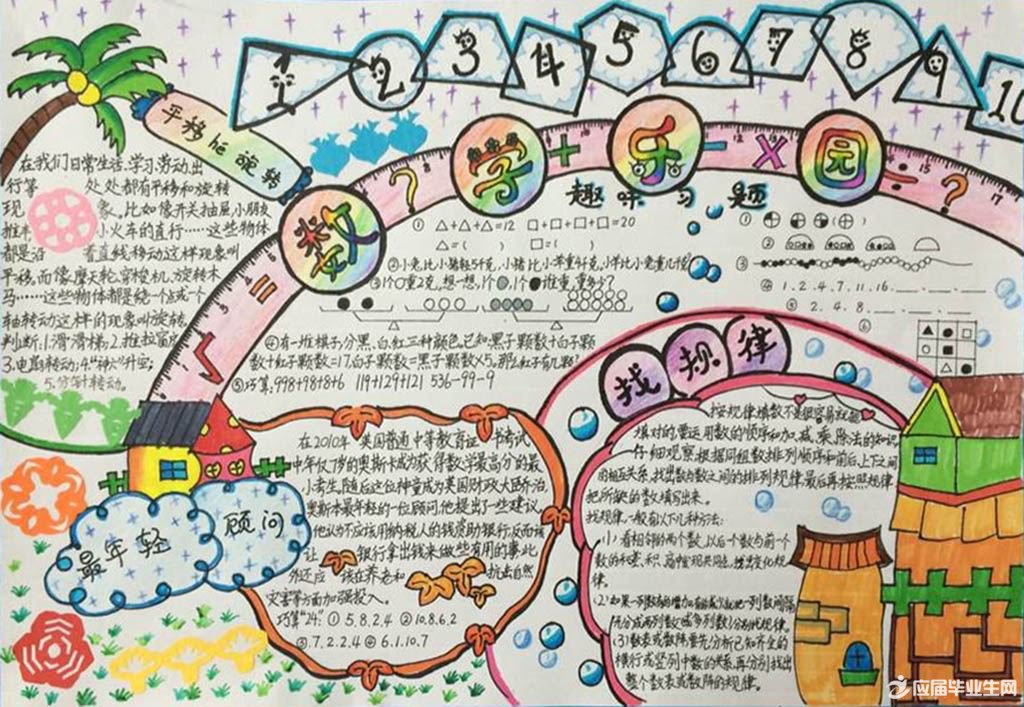 1 2 3 4 5 6 7 8 9 10
平移he旋转
数学乐园
在我们日常生活、学习、劳动出
行等 处处都有平移和旋转
现 象。比如像开关抽屉,小朋友
推 小火车的直行……这些物体
都是沿 着直线移动这样现象叫
平移。而像摩天轮,穿梭机,旋转木
马……这些物体都是绕一个点或一个
轴转动这样的现象叫旋转
判断.1.滑滑梯.2.推拉窗户
3.电扇转动;4."神六"升空;
5.分针转动。
趣味习题
① △+△+△=12 □+□+□+□=20
△=( ) □=( )
②小兔比小猪轻5千克,小猪比小羊重4千克,小羊比小兔重几千克
③1个○重2克,想一想,1个●,1个●谁重,重多少?
④有一堆棋子,分黑、白、红三种颜色,已知:黑子颗数+白子颗
数+红子颗数=17,白子颗数=黑子颗数×5,那么红子有几颗?
⑤巧算:998+98+8+6 119+129+121 536-99-9
① ( )
②
③
④ 1.2.4.7.11.16.
⑤ 2.4.8.
⑥
找规律
按规律填数不是很容易就能
填对的,需运用数的顺序和加、减、乘、除法的知识
仔细观察,根据同组数排列顺序和前后、上下之间
的相互关系,找出数与数之间的排列规律,最后再按照规律
把所缺的数填写出来。
找规律一般有以下几种方法:
(1)看相邻的两个数,以后个数与前一个
数的和、差、积、商中发现共同点,想出变化规
律。
(2)如果一列数有的增加,有的减少,就把一列数间隔
地分成两列数(或多列数)分别找规律。
(3)数表或数阵要先分析已知齐全的
横行或竖列中数的关系,再分别找出
整个数表或数阵的规律。
最年轻
顾问
在2010年 英国普通中等教育证书考试
中年仅7岁的奥斯卡成为获得数学最高分的最
小考生,随后这位神童成为英国财政大臣乔治.
奥斯本最年轻的一位顾问,他提出了一些建议。
他认为不应该用纳税人的钱资助银行,反而该
让 银行拿出钱来做些有用的事,比
外还应 该在养老和 抗击自然
灾害等方面加强投入。
巧算"24" ① 5.8.2.4 ② 10.8.6.2
③ 7.2.2.4 ④ 6.1.10.7
应届毕业生网